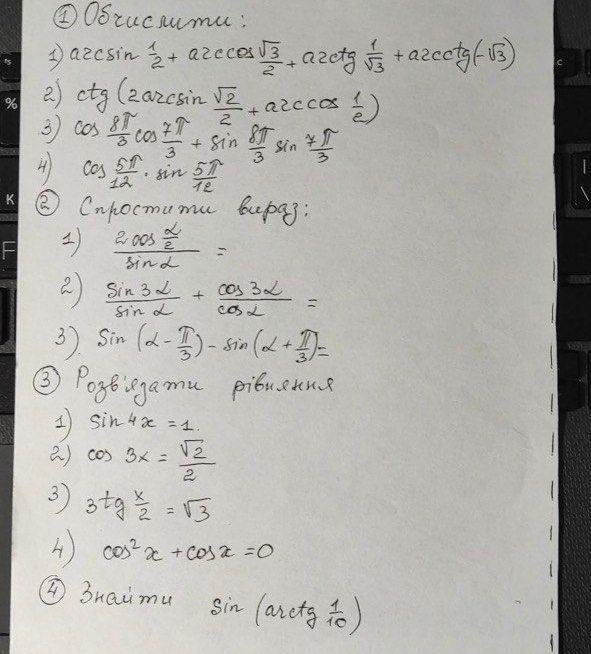 ① Обчислити:
1) arcsin 1/2 + arccos √3/2 + arctg 1/√3 + arcctg(-√3)
2) ctg (2arcsin √2/2 + arccos 1/2)
3) cos 8π/3 cos 7π/3 + sin 8π/3 sin 7π/3
4) cos 5π/12 · sin 5π/12
② Спростити вираз:
1) 2cos α/2 / sin α =
2) sin 3α / sin α + cos 3α / cos α =
3) Sin (α - π/3) - sin (α + π/3) =
③ Розв'язати рівняння
1) sin 4x = 1.
2) cos 3x = √2/2
3) 3tg x/2 = √3
4) cos² x + cos x = 0
④ Знайти sin (arctg 1/10)